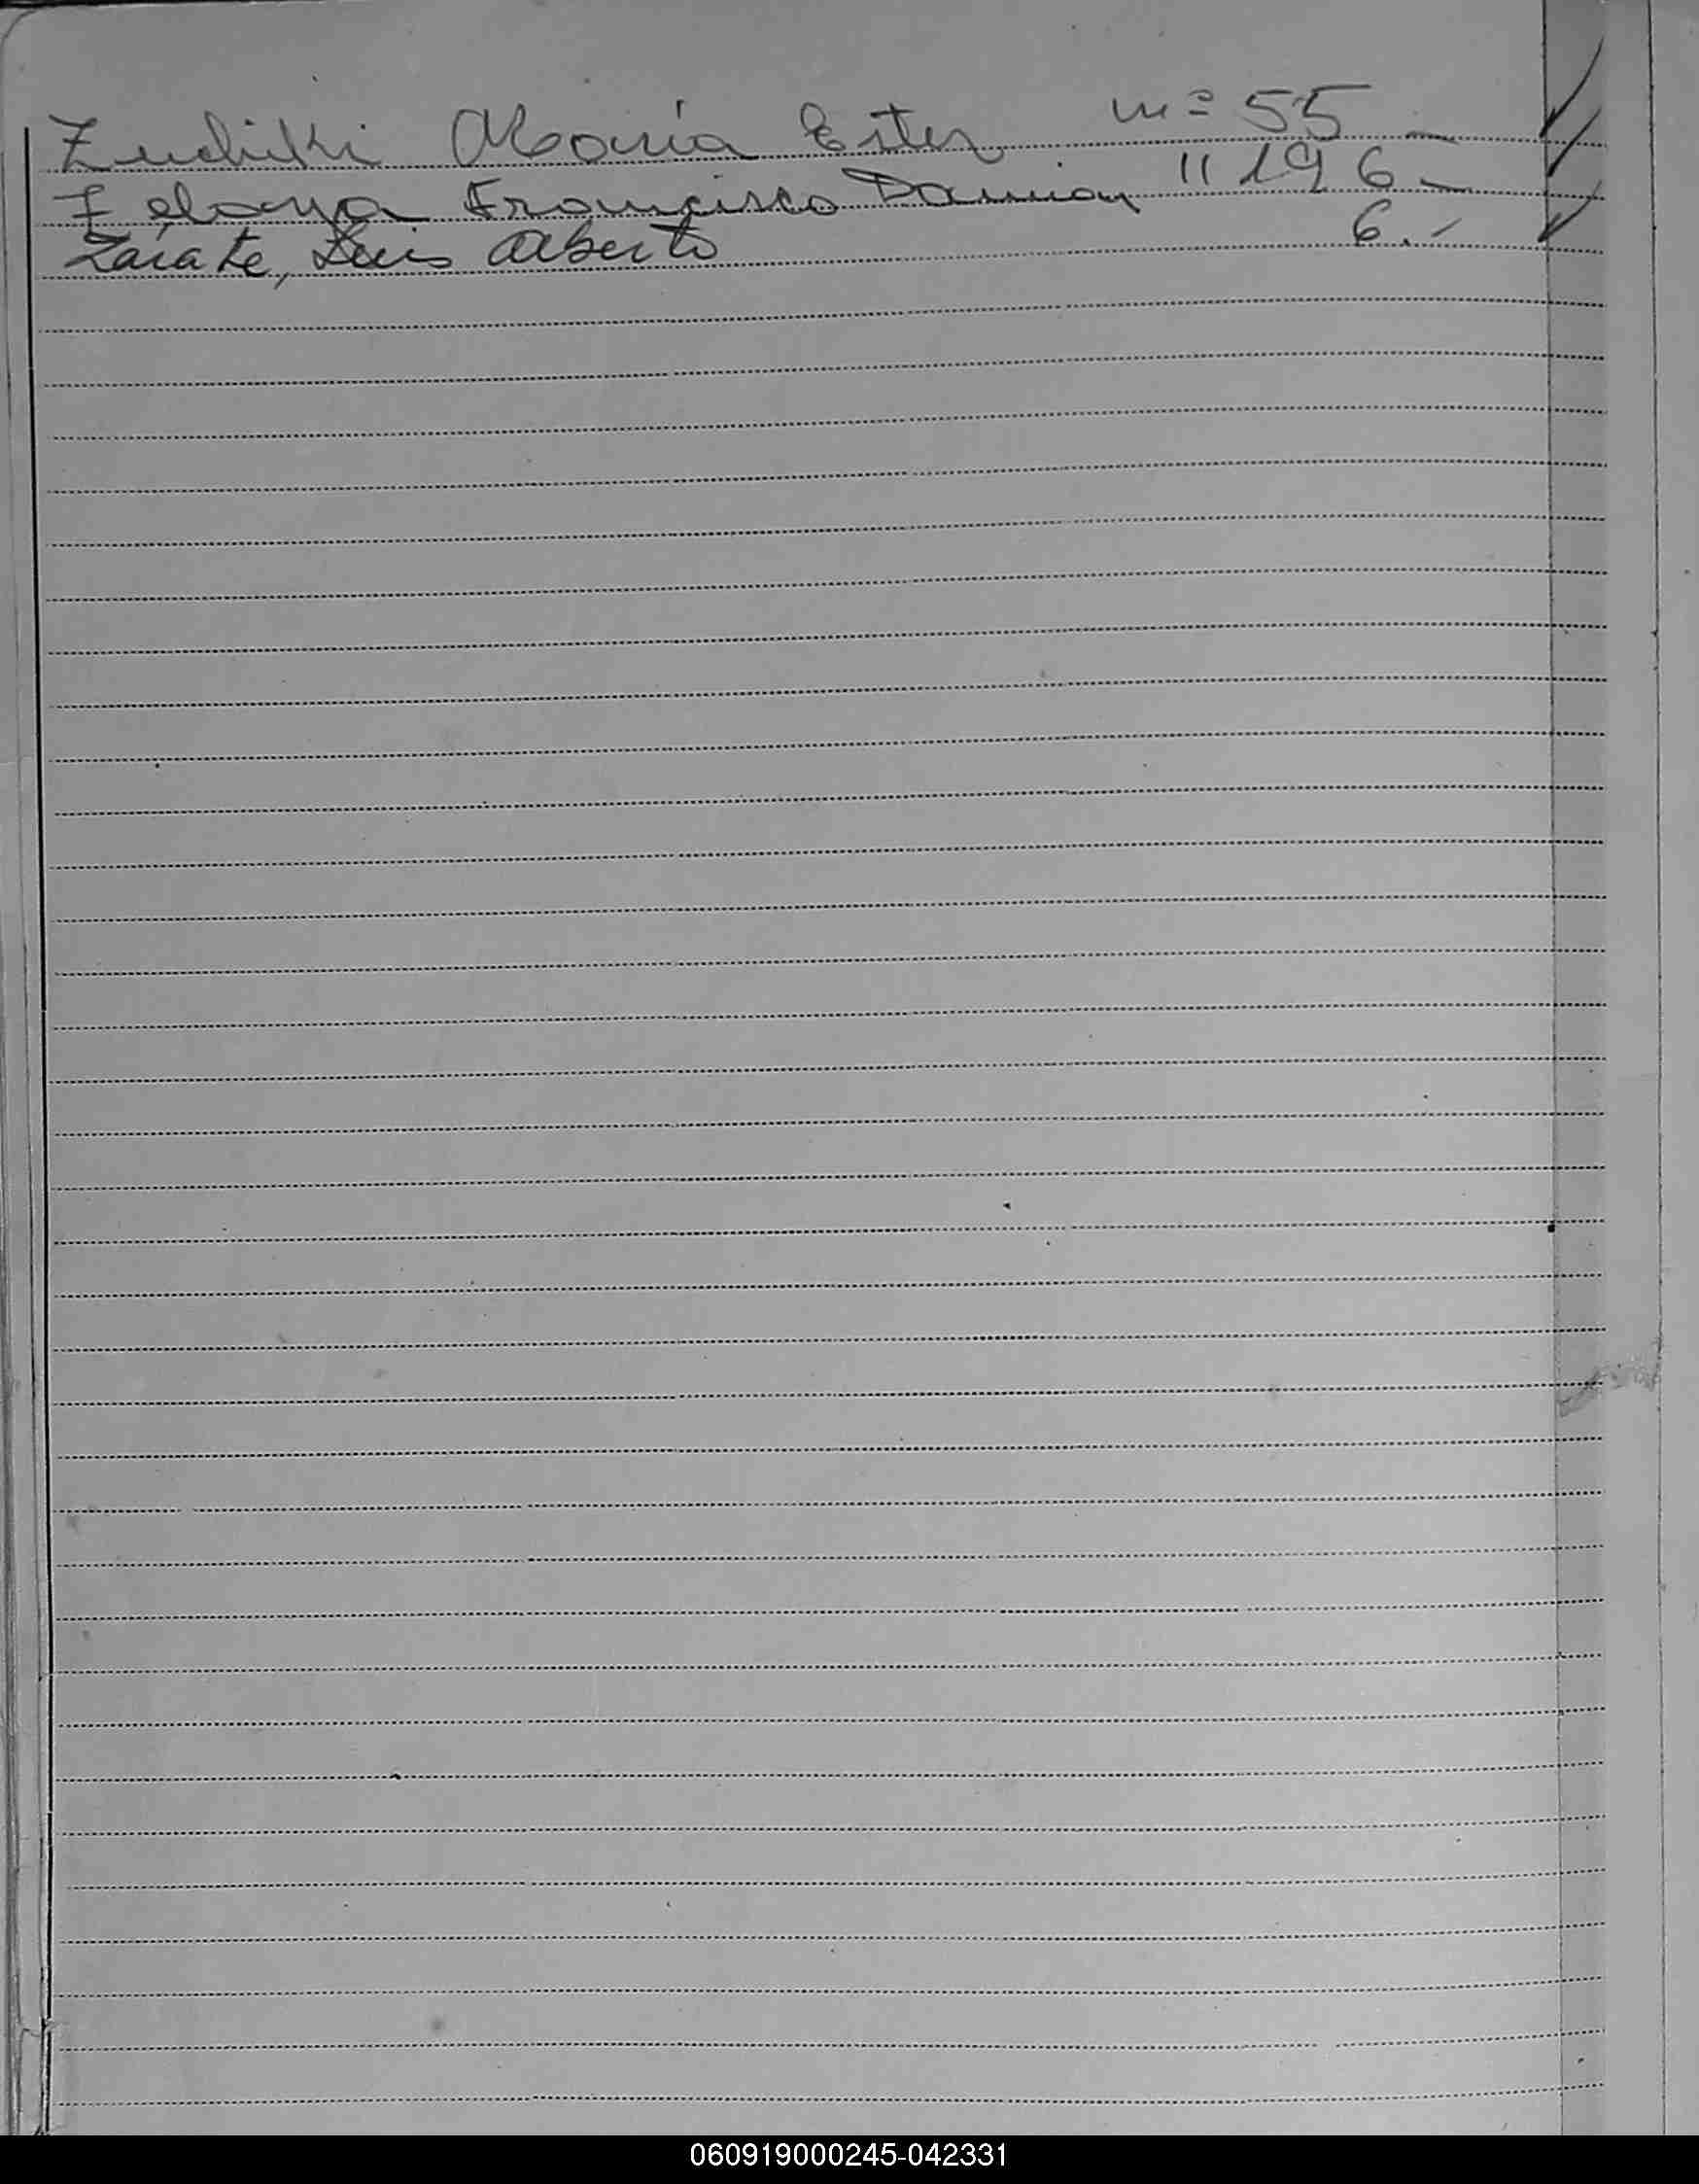 María Ester nº 55 —
Zelaya Francisco Damian " 196 —
Zárate, Luis Alberto 6.-
060919000245-042331